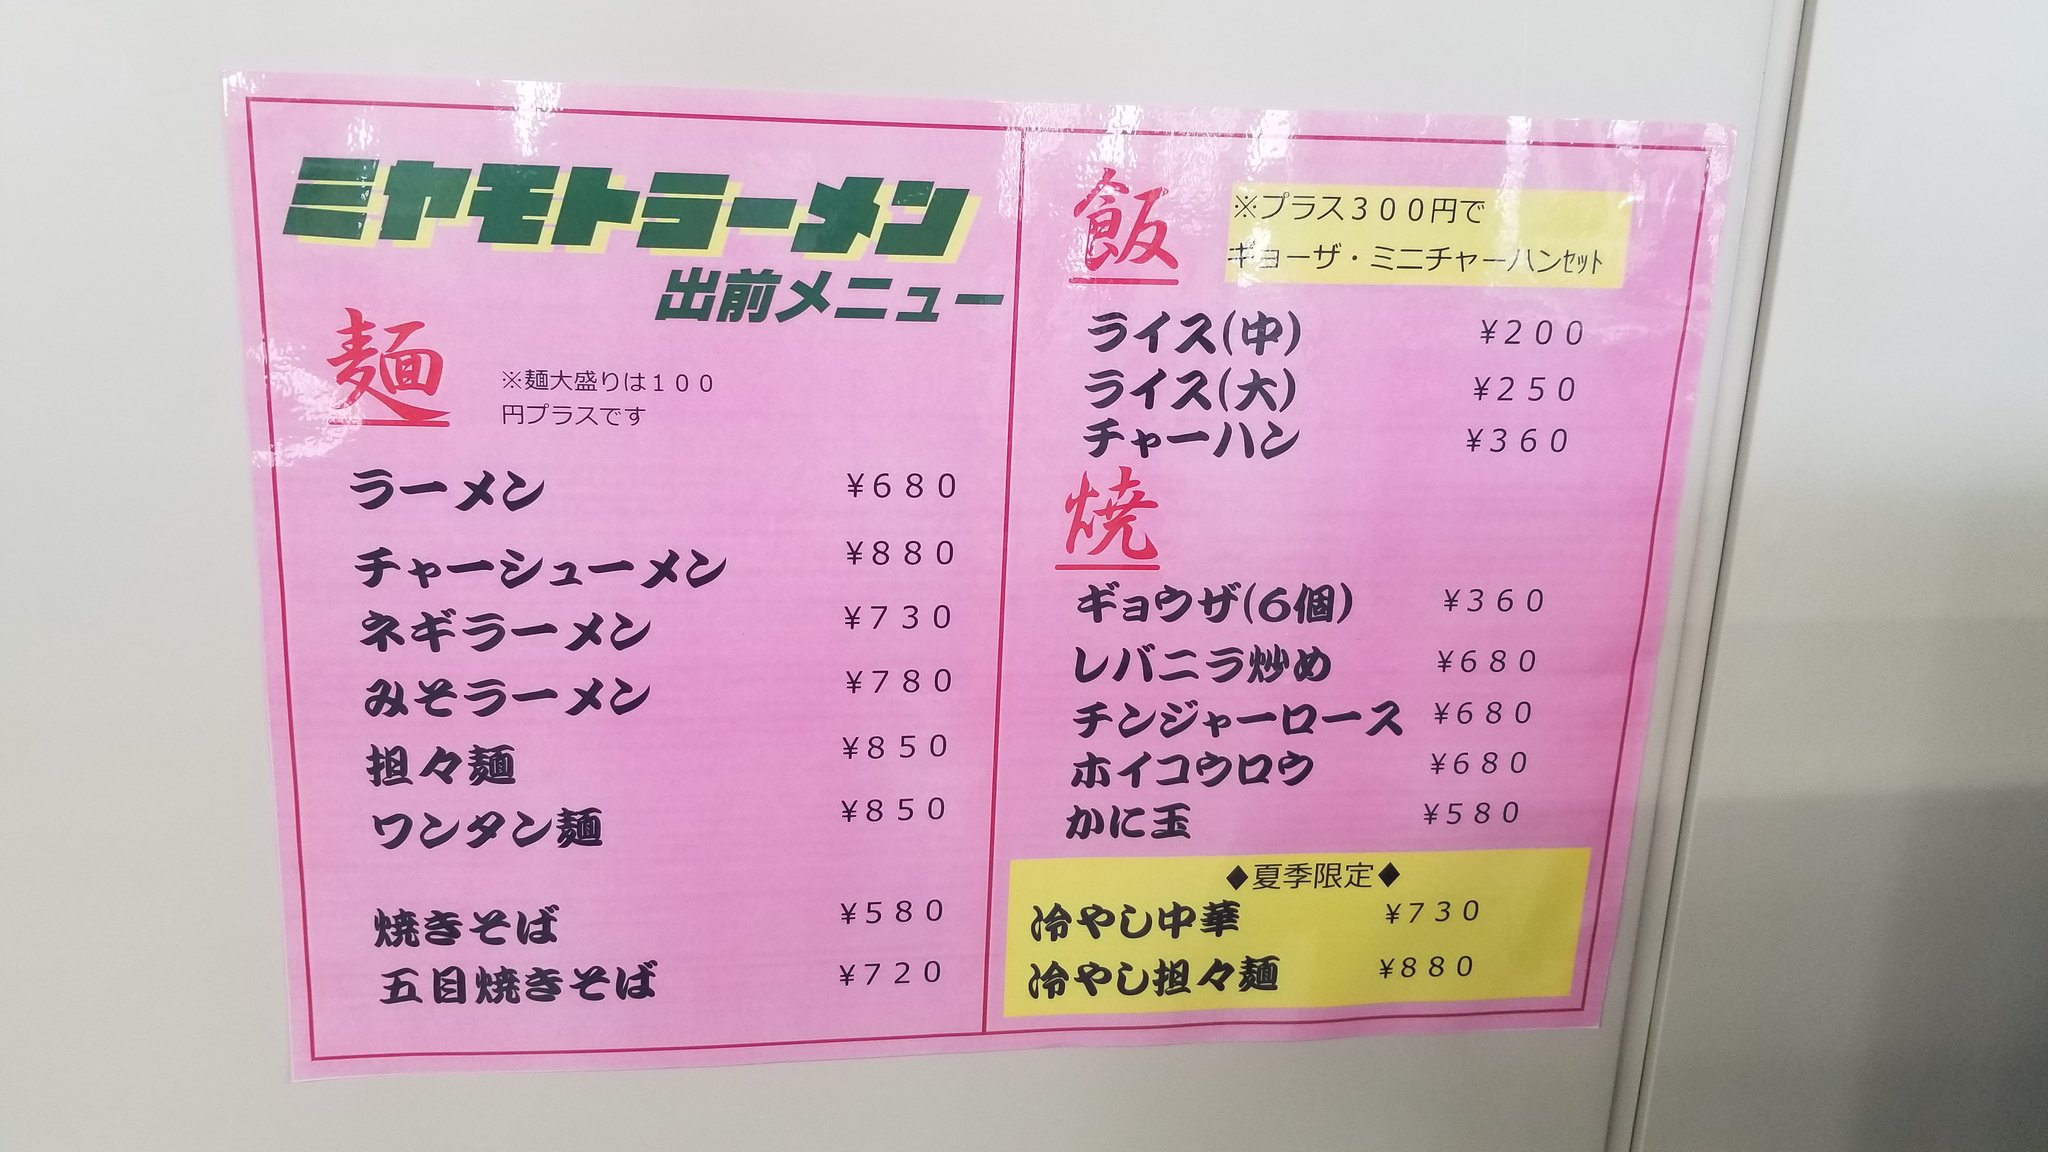 ミヤモトラーメン
出前メニュー
麺
※麺大盛りは１００
円プラスです
ラーメン ¥６８０
チャーシューメン ¥８８０
ネギラーメン ¥７３０
みそラーメン ¥７８０
担々麺 ¥８５０
ワンタン麺 ¥８５０
焼きそば ¥５８０
五目焼きそば ¥７２０
飯
※プラス３００円で
ギョーザ・ミニチャーハンｾｯﾄ
ライス(中) ¥２００
ライス(大) ¥２５０
チャーハン ¥３６０
焼
ギョウザ(6個) ¥３６０
レバニラ炒め ¥６８０
チンジャーロース ¥６８０
ホイコウロウ ¥６８０
かに玉 ¥５８０
◆夏季限定◆
冷やし中華 ¥７３０
冷やし担々麺 ¥８８０